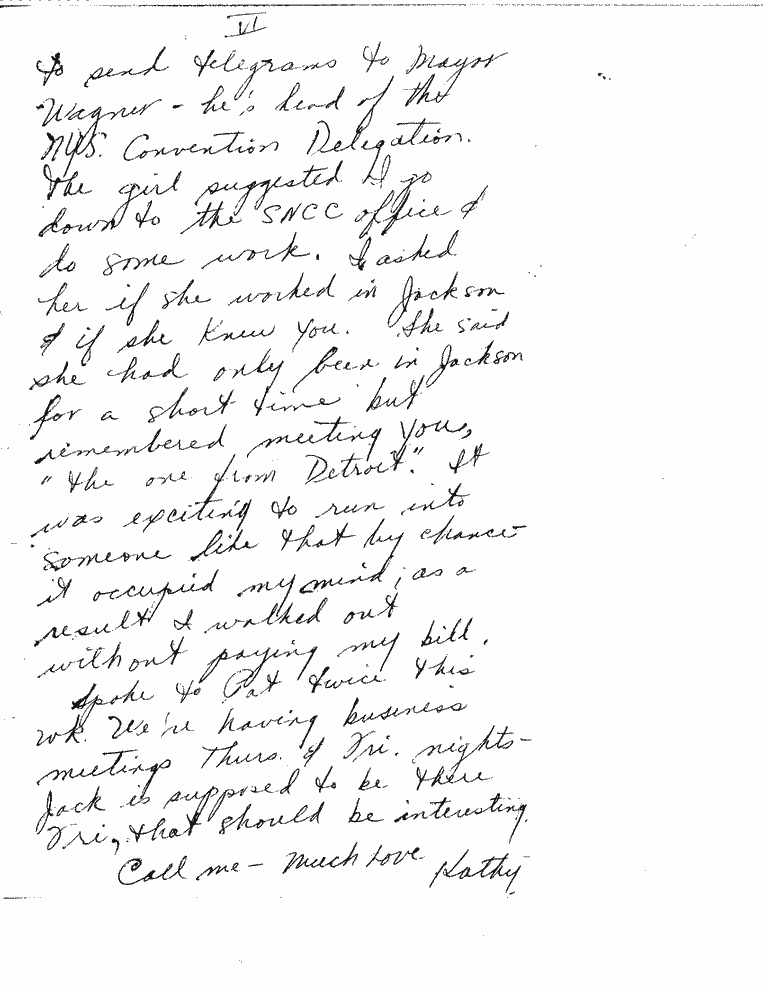 VI
to send telegrams to Mayor
Wagner - he's head of the
NYS. Convention Delegation.
The girl suggested I go
down to the SNCC office &
do some work. I asked
her if she worked in Jackson
& if she knew you. She said
she had only been in Jackson
for a short time but
remembered meeting you,
"the one from Detroit." It
was exciting to run into
someone like that by chance -
it occupied my mind; as a
result I walked out
without paying my bill.
Spoke to Pat twice this
wk. We're having business
meetings Thurs. & Fri. nights -
Jack is supposed to be there
Fri, that should be interesting.
Call me - Much Love Kathy